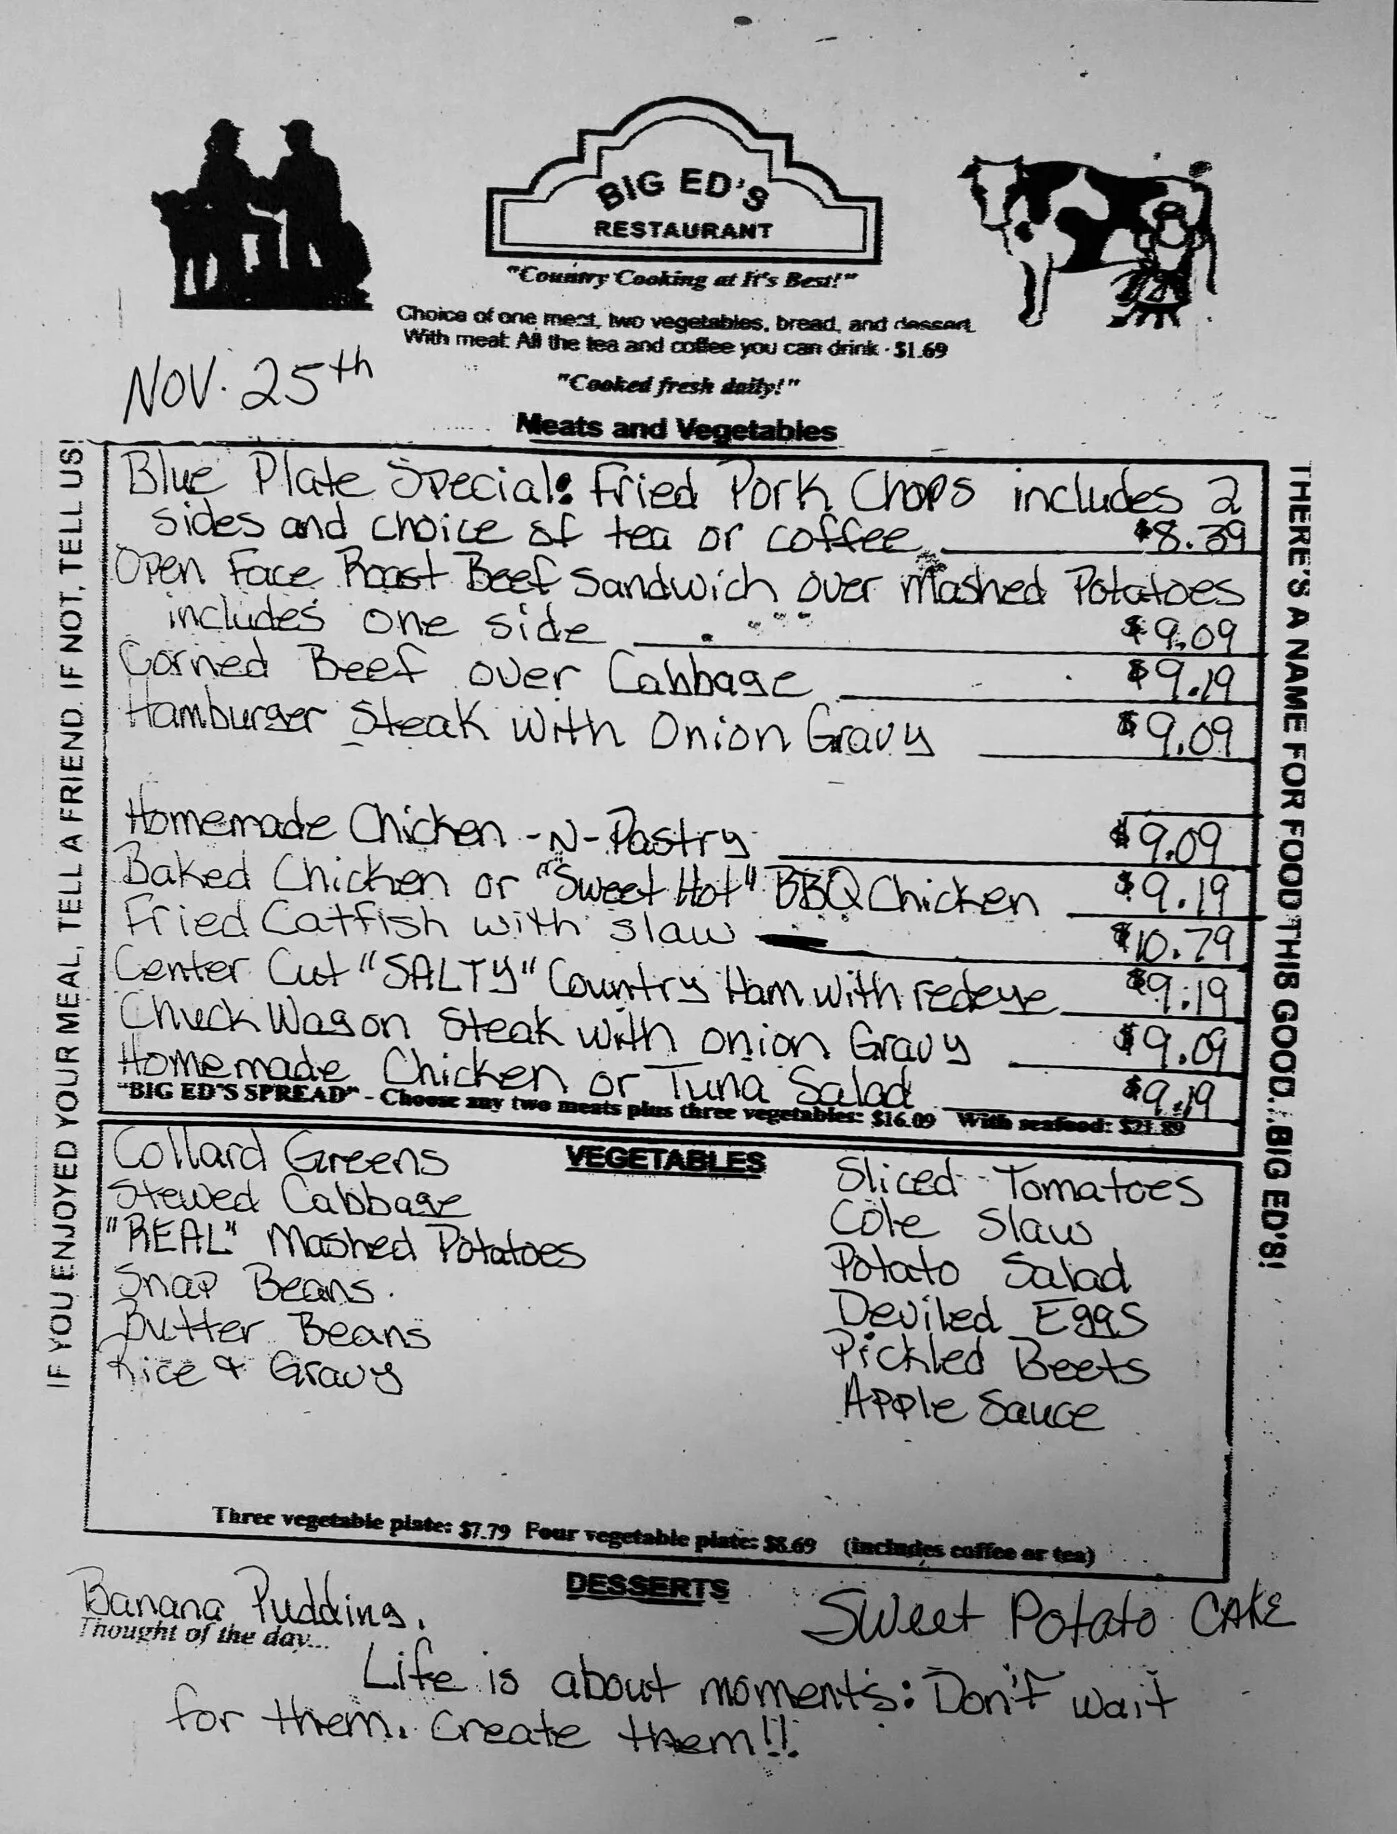 BIG ED'S
RESTAURANT
"Country Cooking at It's Best!"
Choice of one meat, two vegetables, bread, and dessert.
With meal: All the tea and coffee you can drink - $1.69
NOV. 25th
"Cooked fresh daily!"
Meats and Vegetables
IF YOU ENJOYED YOUR MEAL, TELL A FRIEND. IF NOT, TELL US!
Blue Plate Special: Fried Pork Chops includes 2
sides and choice of tea or coffee $8.39
Open Face Roast Beef Sandwich over Mashed Potatoes
includes one side $9.09
Corned Beef over Cabbage $9.19
Hamburger Steak with Onion Gravy $9.09
Homemade Chicken -N- Pastry $9.09
Baked Chicken or "Sweet Hot" BBQ Chicken $9.19
Fried Catfish with slaw $10.79
Center Cut "SALTY" Country Ham with redeye $9.19
Chuck Wagon Steak with onion Gravy $9.09
Homemade Chicken or Tuna Salad $9.19
"BIG ED'S SPREAD" - Choose any two meats plus three vegetables: $16.09 With seafood: $21.89
THERE'S A NAME FOR FOOD THIS GOOD...BIG ED'S!
VEGETABLES
Collard Greens
Stewed Cabbage
"REAL" Mashed Potatoes
Snap Beans
Butter Beans
Rice & Gravy
Sliced Tomatoes
Cole Slaw
Potato Salad
Deviled Eggs
Pickled Beets
Apple Sauce
Three vegetable plate: $7.79 Four vegetable plate: $8.69 (includes coffee or tea)
DESSERTS
Banana Pudding, Sweet Potato CAKE
Thought of the day...
Life is about moments: Don't wait
for them. Create them!!